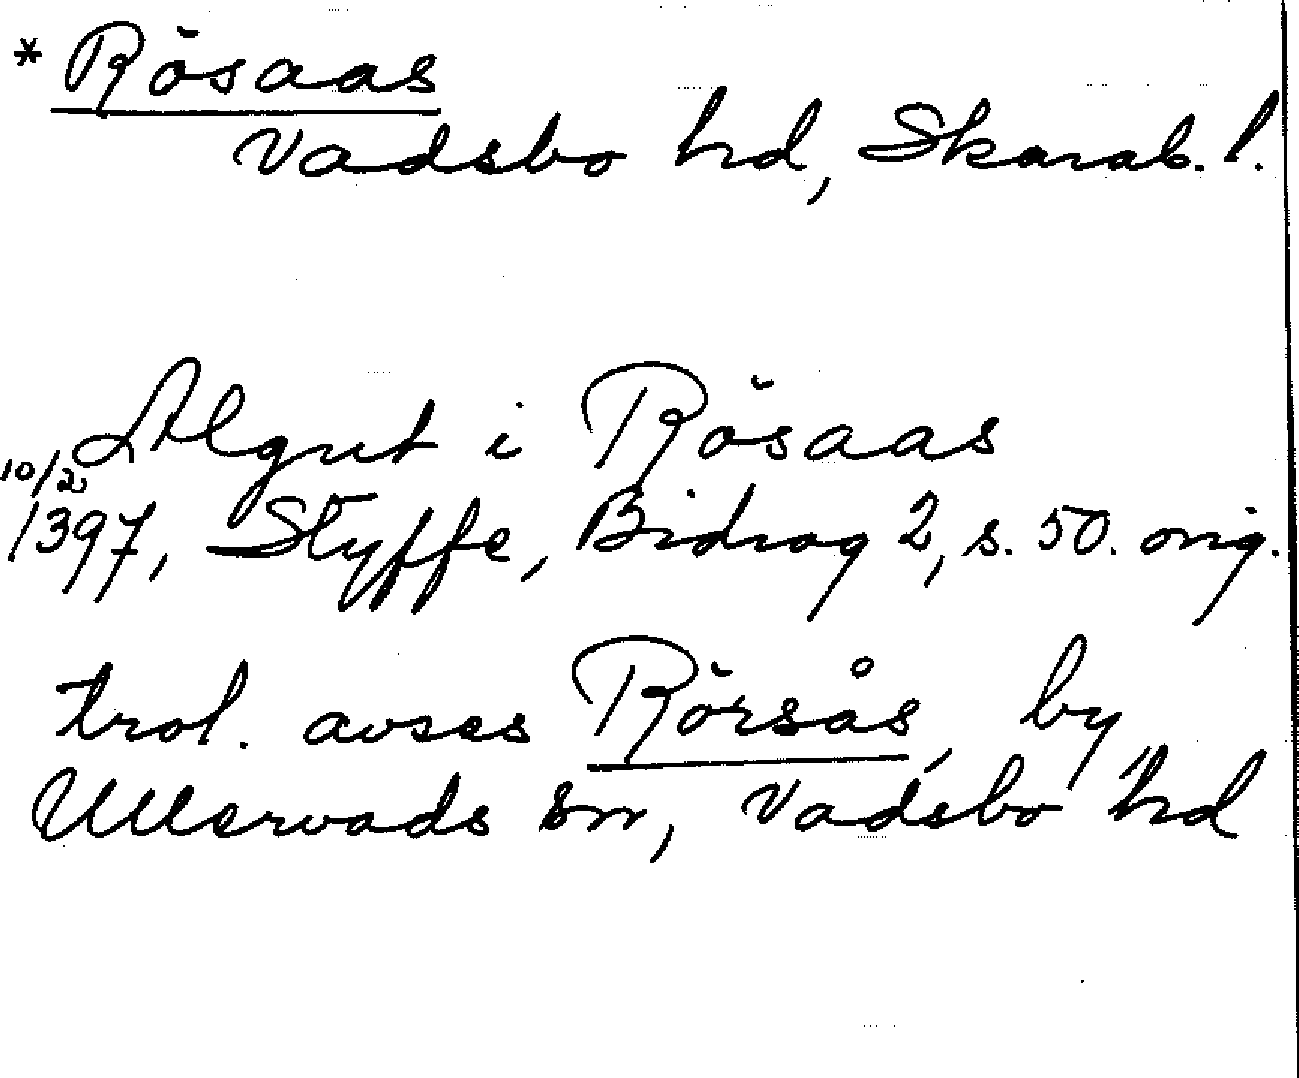 * Rösaas
Vadsbo hd, Skarab. l.
Algut i Rösaas
10/2
1397, Styffe, Bidrag 2, s. 50. orig.
trol. avses Rörsås, by
Ullervads sn, Vadsbo hd